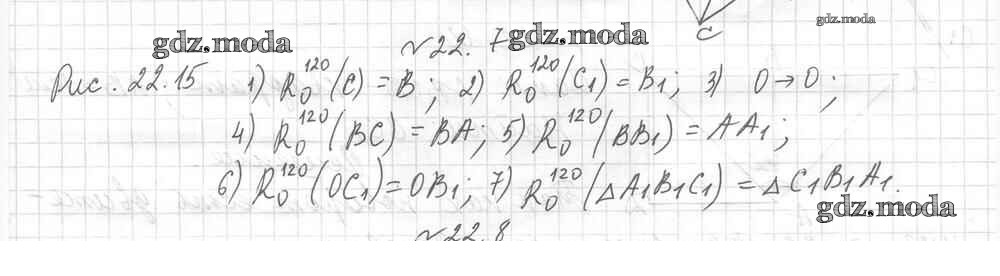 C
gdz.moda
gdz.moda №22.7 gdz.moda
Рис. 22.15 1) R₀¹²⁰(C) = B; 2) R₀¹²⁰(C₁) = B₁; 3) O → O;
4) R₀¹²⁰(BC) = BA; 5) R₀¹²⁰(BB₁) = AA₁;
6) R₀¹²⁰(OC₁) = OB₁; 7) R₀¹²⁰(△A₁B₁C₁) = △C₁B₁A₁.
gdz.moda
№22.8